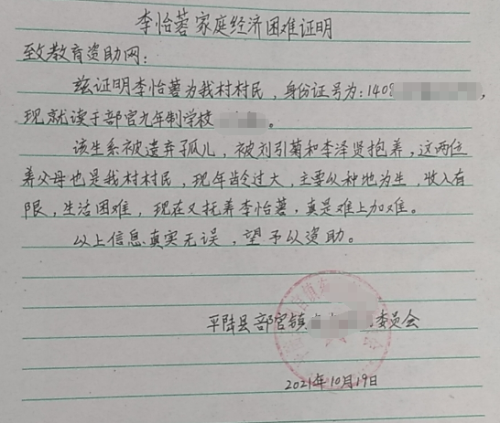 李怡蓉家庭经济困难证明
致教育资助网：
兹证明李怡蓉为我村村民，身份证号为：1408
现就读于部官九年制学校 。
该生系被遗弃孤儿，被刘引菊和李泽贤抱养，这两位
养父母也是我村村民，现年龄过大，主要以种地为生，收入有
限，生活困难，现在又抚养李怡蓉，真是难上加难。
以上信息真实无误，望予以资助。
平陆县部官镇 委员会
2021年10月19日